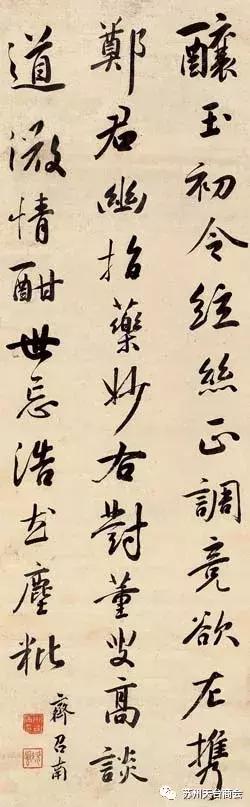 釀玉初令絃絲正調竟欲左攜
鄭君幽指藥妙右對董叟高談
道情酣世忘浩出塵粃
齊召南
苏州天台商会